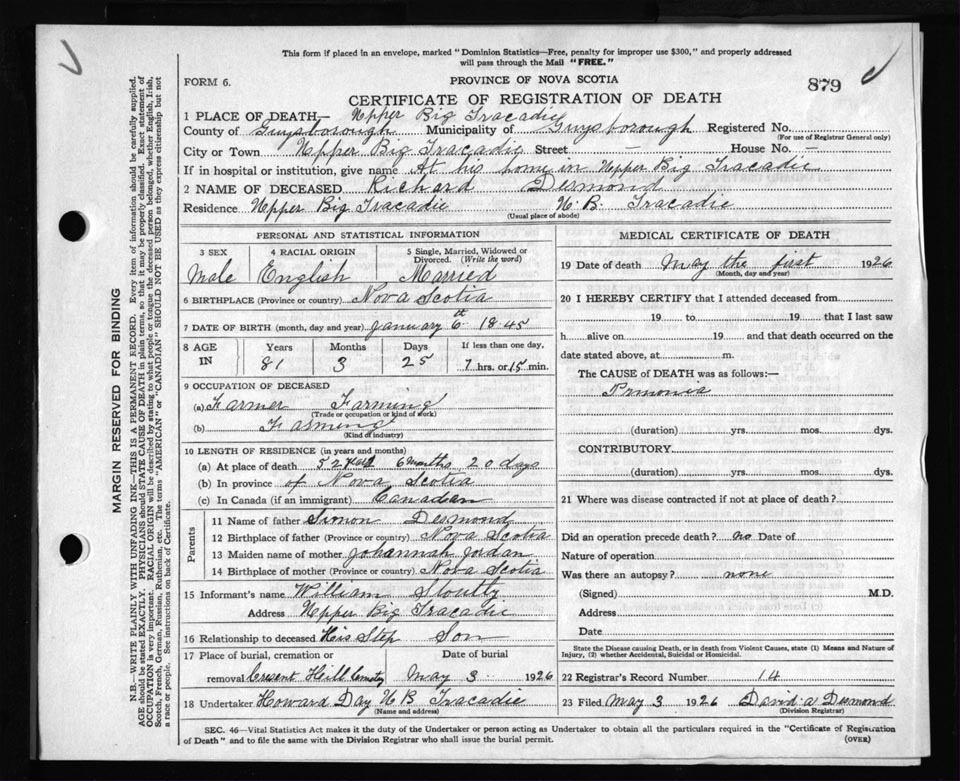 This form if placed in an envelope, marked "Dominion Statistics—Free, penalty for improper use $300," and properly addressed
will pass through the Mail "FREE."
FORM 6.
PROVINCE OF NOVA SCOTIA
879
CERTIFICATE OF REGISTRATION OF DEATH
1 PLACE OF DEATH— Upper Big Tracadie
County of Guysborough Municipality of Guysborough Registered No.
(For use of Registrar General only)
City or Town Upper Big Tracadie Street — House No. —
If in hospital or institution, give name At his home in Upper Big Tracadie
2 NAME OF DECEASED Richard Desmond
Residence Upper Big Tracadie U. B. Tracadie
(Usual place of abode)
PERSONAL AND STATISTICAL INFORMATION
3 SEX 4 RACIAL ORIGIN 5 Single, Married, Widowed or
Divorced. (Write the word)
Male English Married
6 BIRTHPLACE (Province or country) Nova Scotia
7 DATE OF BIRTH (month, day and year) January 6th 1845
8 AGE IN Years Months Days If less than one day,
81 3 25 7 hrs. or 15 min.
9 OCCUPATION OF DECEASED
(a) Farmer Farming
(Trade or occupation or kind of work)
(b) Farming
(Kind of industry)
10 LENGTH OF RESIDENCE (in years and months)
(a) At place of death 52 6 months 20 days
(b) In province of Nova Scotia
(c) In Canada (if an immigrant) Canadian
Parents
11 Name of father Simon Desmond
12 Birthplace of father (Province or country) Nova Scotia
13 Maiden name of mother Johannah Jordan
14 Birthplace of mother (Province or country) Nova Scotia
15 Informant's name William
Address Upper Big Tracadie
16 Relationship to deceased His Step Son
17 Place of burial, cremation or Date of burial
removal Cresent Hill Cemetry May 3 1926
18 Undertaker Howard Day U B Tracadie
(Name and address)
MEDICAL CERTIFICATE OF DEATH
19 Date of death May the first 1926
(Month, day and year)
20 I HEREBY CERTIFY that I attended deceased from
19 to 19 that I last saw
h alive on 19 and that death occurred on the
date stated above, at m.
The CAUSE of DEATH was as follows:—
Pmonia
(duration) yrs. mos. dys.
CONTRIBUTORY
(duration) yrs. mos. dys.
21 Where was disease contracted if not at place of death?
Did an operation precede death? no Date of
Nature of operation
Was there an autopsy? none
(Signed) M.D.
Address
Date
State the Disease causing Death, or in death from Violent Causes, state (1) Means and Nature of
Injury, (2) whether Accidental, Suicidal or Homicidal.
22 Registrar's Record Number 14
23 Filed May 3 1926 David a Desmond
(Division Registrar)
SEC. 46—Vital Statistics Act makes it the duty of the Undertaker or person acting as Undertaker to obtain all the particulars required in the "Certificate of Registration
of Death" and to file the same with the Division Registrar who shall issue the burial permit.
(OVER)
MARGIN RESERVED FOR BINDING
N.B.—WRITE PLAINLY WITH UNFADING INK—THIS IS A PERMANENT RECORD. Every item of information should be carefully supplied.
AGE should be stated EXACTLY. PHYSICIANS should STATE CAUSE OF DEATH in plain terms, so that it may be properly classified. Exact statement of
OCCUPATION is very important. RACIAL ORIGIN will be described by stating to what people or tongue the deceased person belonged, whether English, Irish,
Scotch, French, German, Russian, Ruthenian, etc. The terms "AMERICAN" or "CANADIAN" SHOULD NOT BE USED as they express citizenship but not
a race or people. See instructions on back of Certificate.